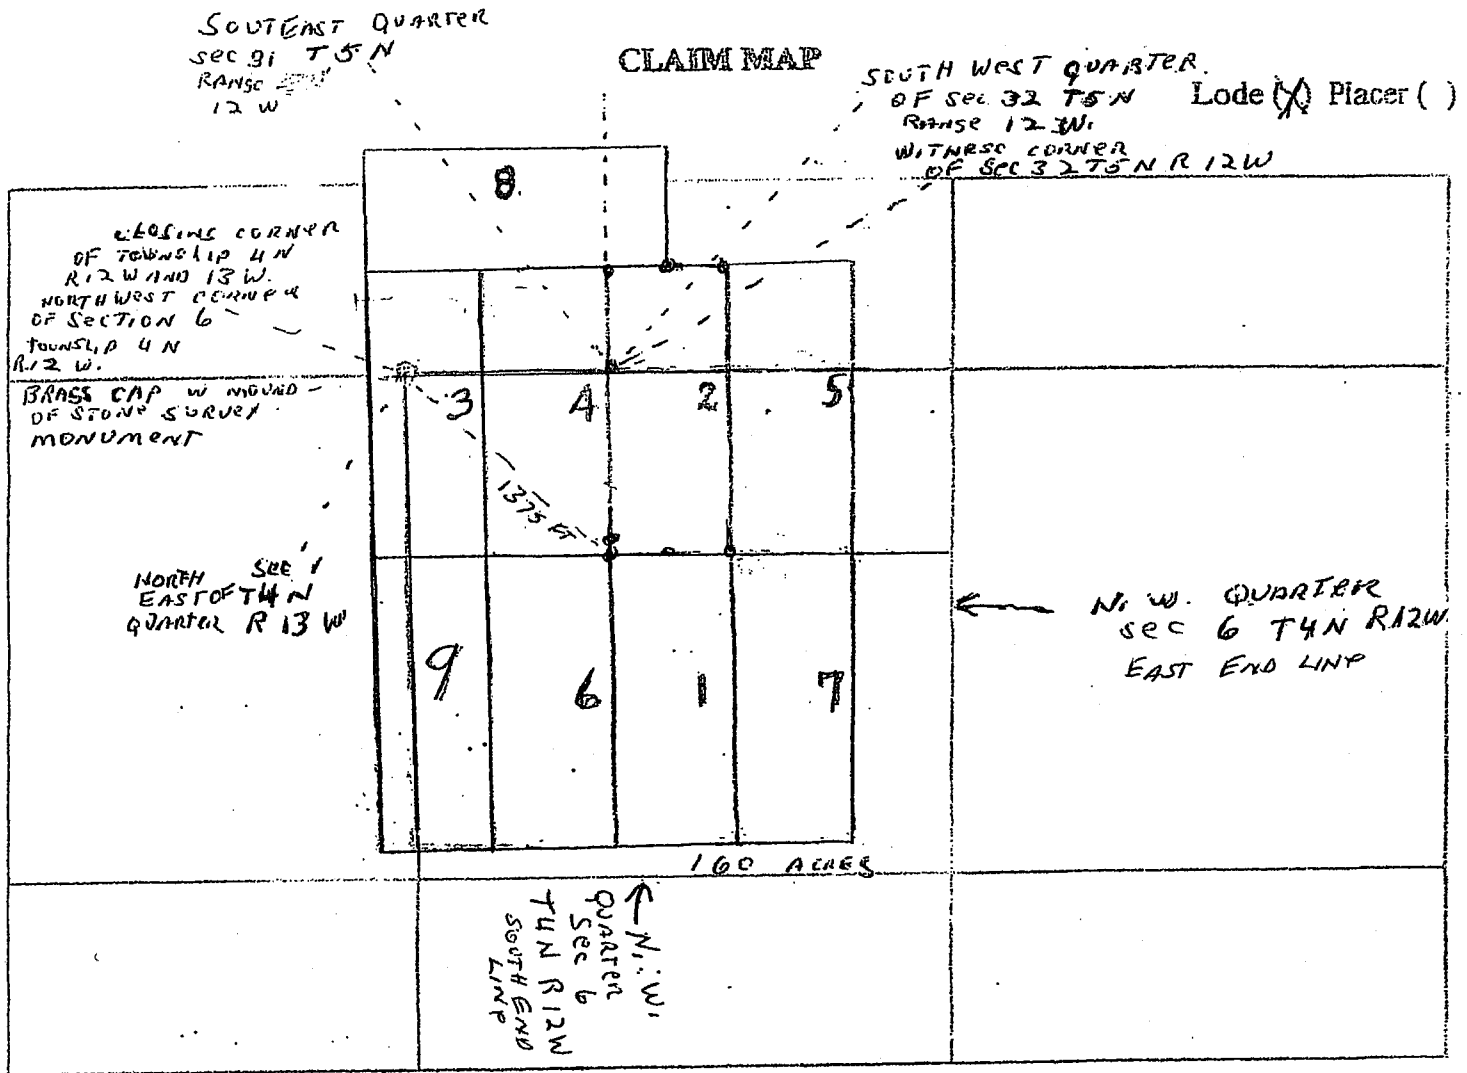 SOUTEAST QUARTER
SEC 31 T5N
RANGE
12 W
CLAIM MAP
SOUTH WEST QUARTER
OF SEC 32 T5N
RANGE 12 W.
WITNESS CORNER
OF SEC 32 T5N R 12W
Lode (X) Placer ( )
8
CLOSING CORNER
OF TOWNSLIP 4 N
R12W AND 13 W.
NORTHWEST CORNER
OF SECTION 6
TOUNSLIP 4 N
R.12 W.
BRASS CAP W MOUND
OF STONE SURVEY
MONUMENT
3
4
2
5
1375 FT
NORTH SEE 1
EAST OF T4N
QUARTER R 13 W
N. W. QUARTER
SEC 6 T4N R12W.
EAST END LINE
9
6
1
7
160 ACRES
N. W.
QUARTER
SEC 6
T4N R12W
SOUTH END
LINE